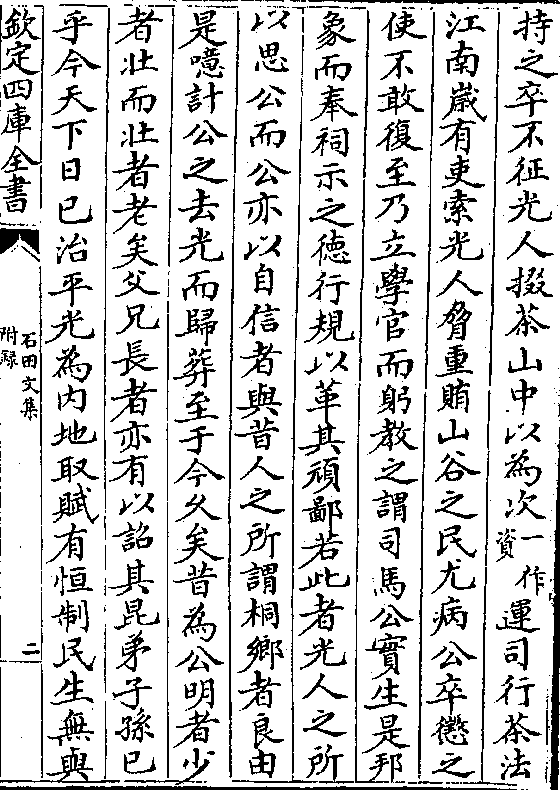 持之卒不征光人掇茶山中以為次一作資運司行茶法
江南歳有吏索光人脅重賄山谷之民尤病公卒懲之
使不敢復至乃立學官而躬教之謂司馬公實生是邦
象而奉祠示之徳行規以革其頑鄙若此者光人之所
以思公而公亦以自信者與昔人之所謂桐鄉者良由
是噫計公之去光而歸葬至于今乆矣昔為公明者少
者壯而壯者老矣父兄長者亦有以詔其昆弟子孫已
乎今天下日已治平光為内地取賦有恒制民生無與
欽定四庫全書
石田文集
附録
二